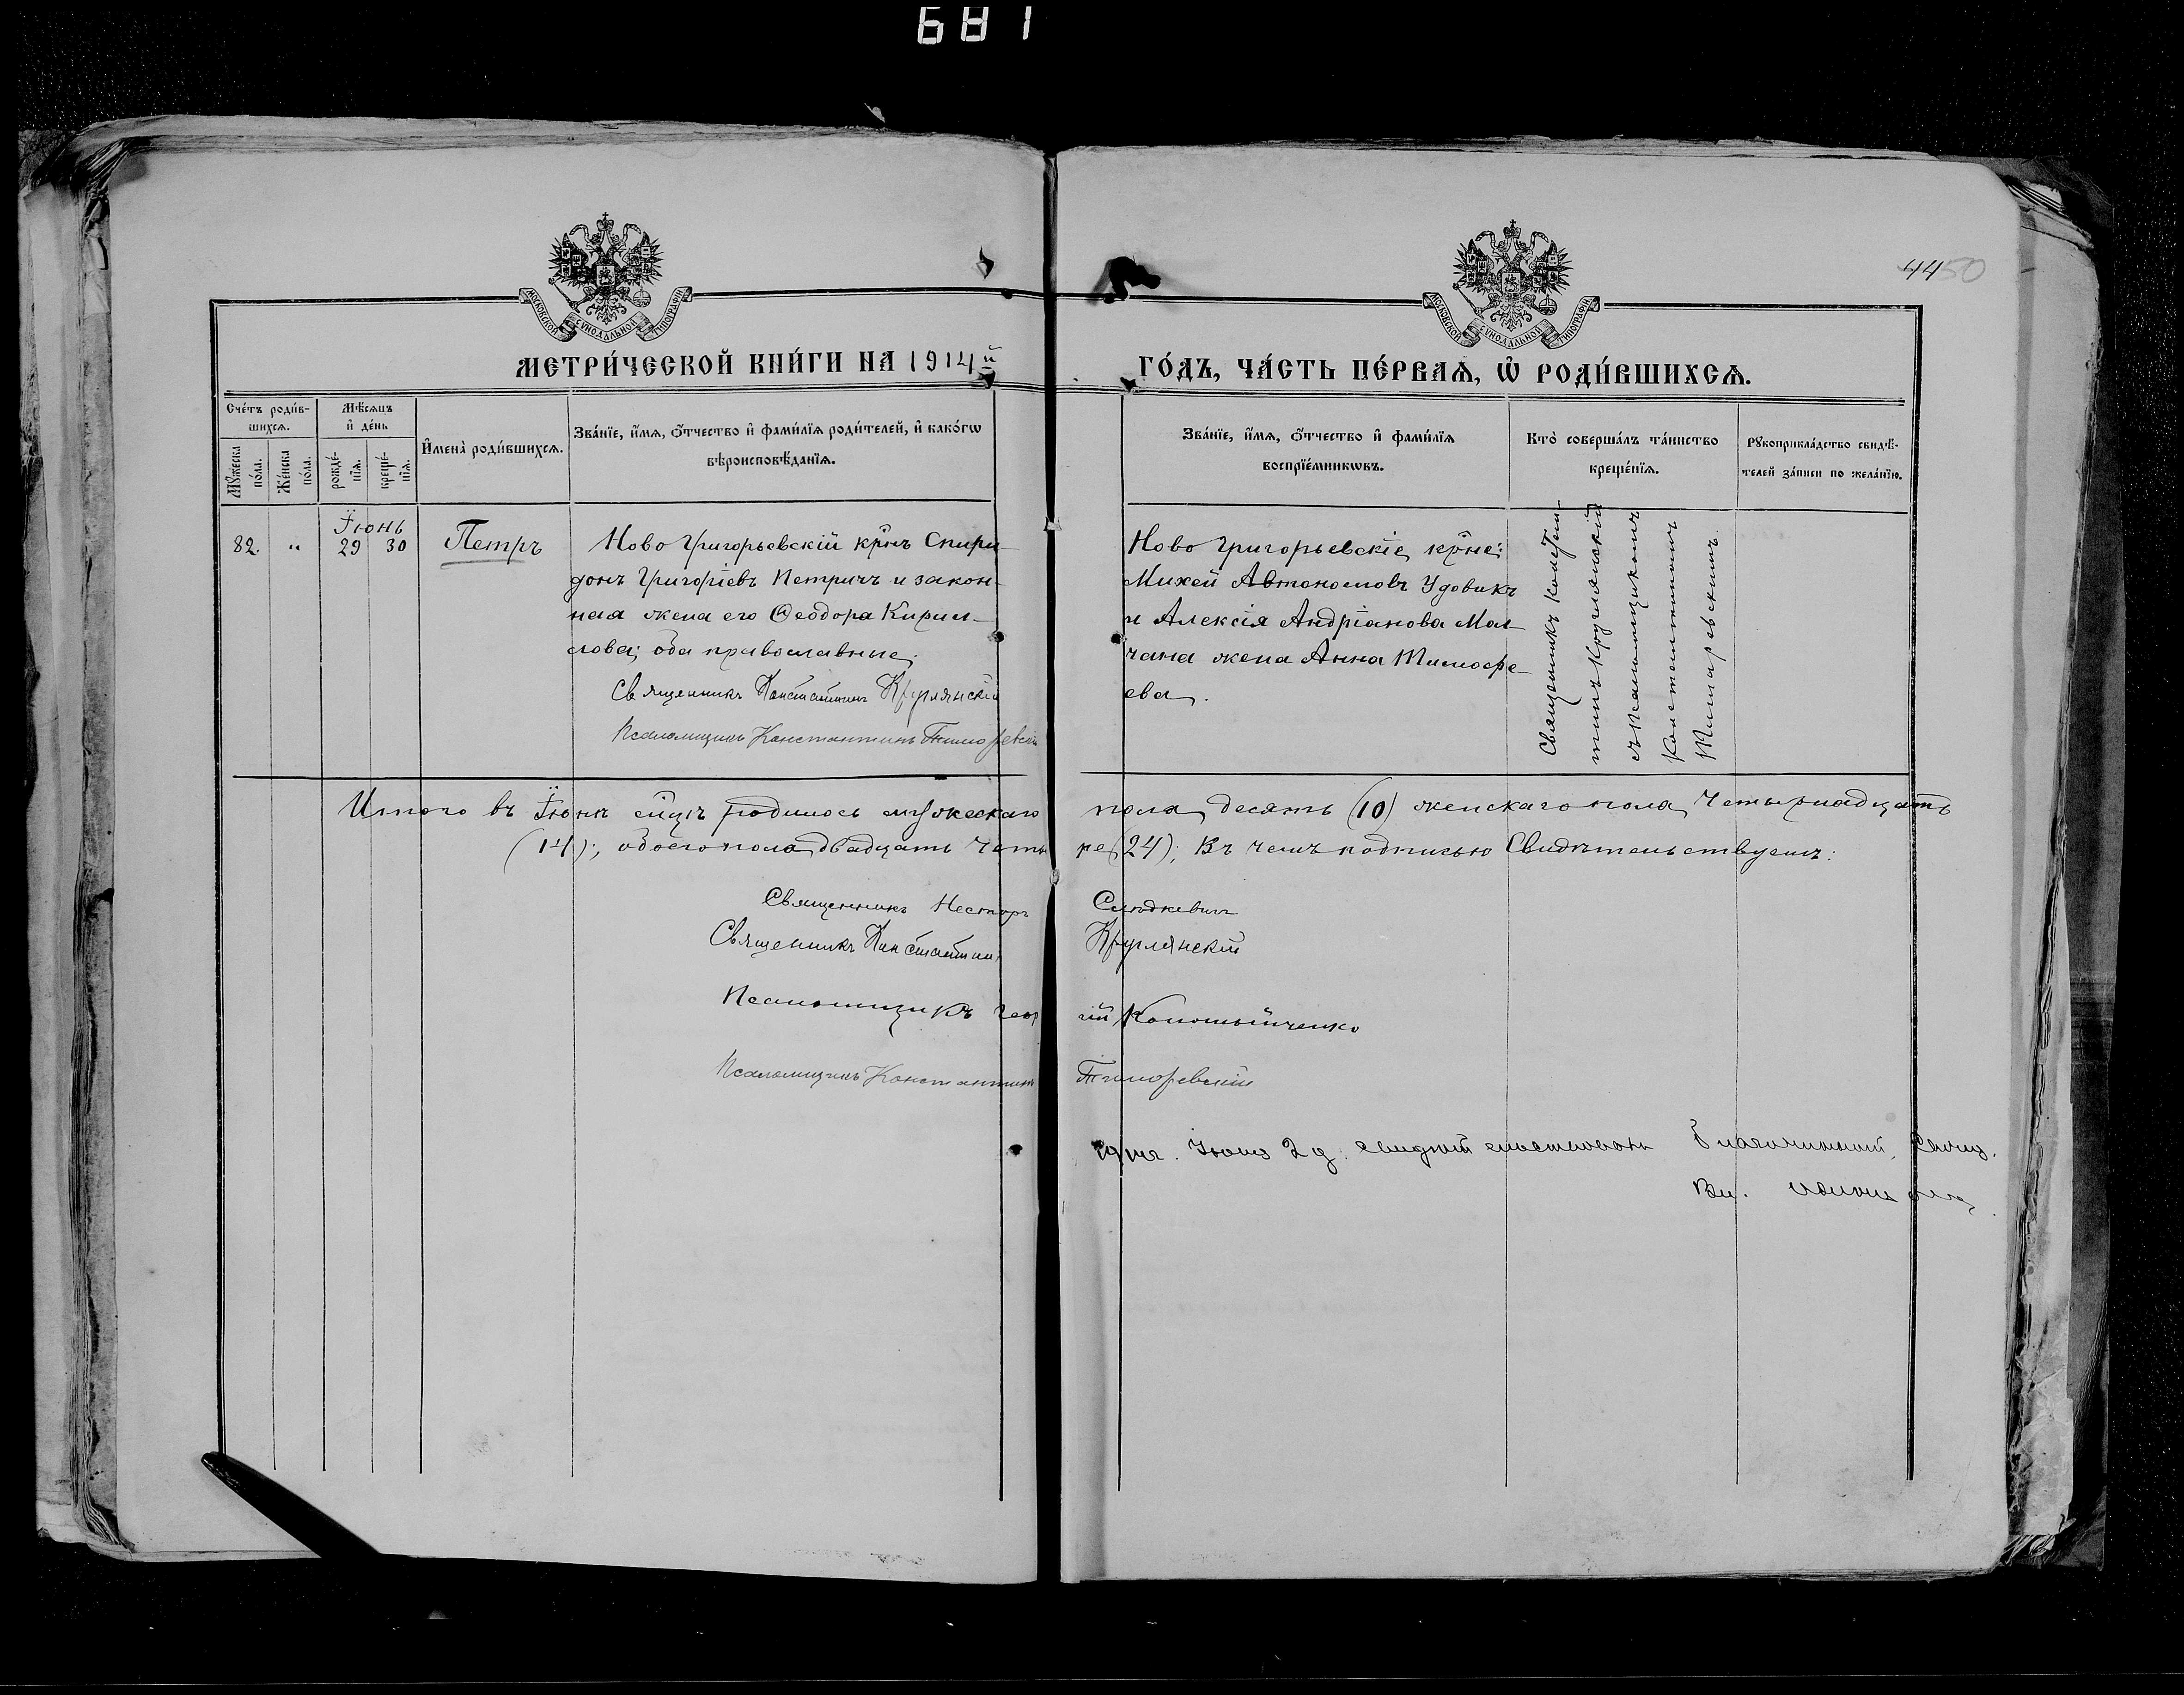 681
4450
МОСКОВСКОЙ СѴНОДАЛЬНОЙ ТИПОГРАФІИ
МОСКОВСКОЙ СѴНОДАЛЬНОЙ ТИПОГРАФІИ
МЕТРИ́ЧЕСКОЙ КНИ́ГИ НА 1914й ГО́ДЪ, ЧА́СТЬ ПЕ́РВАѦ, Ѽ РОДИ́ВШИХСѦ.
Сче́тъ роди́в-
шихсѧ.
Мꙋ́жеска
по́ла.
Же́нска
по́ла.
Мѣ́сѧцъ
и҆ де́нь
рожде́-
нїѧ.
креще́-
нїѧ.
И҆мена̀ роди́вшихсѧ.
Зва́нїе, и҆́мѧ, ѻ҆́тчество и҆ фами́лїѧ роди́телей, и҆ како́гѡ
вѣроисповѣ́данїѧ.
Зва́нїе, и҆́мѧ, ѻ҆́тчество и҆ фами́лїѧ
воспрїе́мникѡвъ.
Кто̀ соверша́лъ та́инство
креще́нїѧ.
Рꙋкоприкла́дство свидѣ́-
телей за́писи по жела́нїю.
Іюнь
82. " 29 30 Петръ
Ново Григорьевскій крнъ Спири-
донъ Григоріевъ Петричъ и закон-
ная жена его Ѳеодора Кирил-
лова; оба православные;
Священникъ Константинъ Круглянскій
Псаломщикъ Константинъ
Ново Григорьевскіе, крне:
Михей Автономовъ Удовикъ
и Алексія Андріанова Мол-
чана жена Анна Тимофе-
ева.
Священникъ Констан-
тинъ Круглянскій
съ Псаломщикомъ
Константиномъ
Итого въ Іюнѣ мцѣ родилось мужескаго пола десять (10) женскаго пола, Четырнадцать
(14); обоего пола двадцать Четыре (24); Въ чемъ подписью Свидѣтельствуемъ:
Священникъ Несторъ
Священникъ Константинъ Круглянскій
Псаломщикъ Георгій Коломыйченко
Псаломщикъ Константинъ
1914 г. 2 д. Благочинный, Свящ.